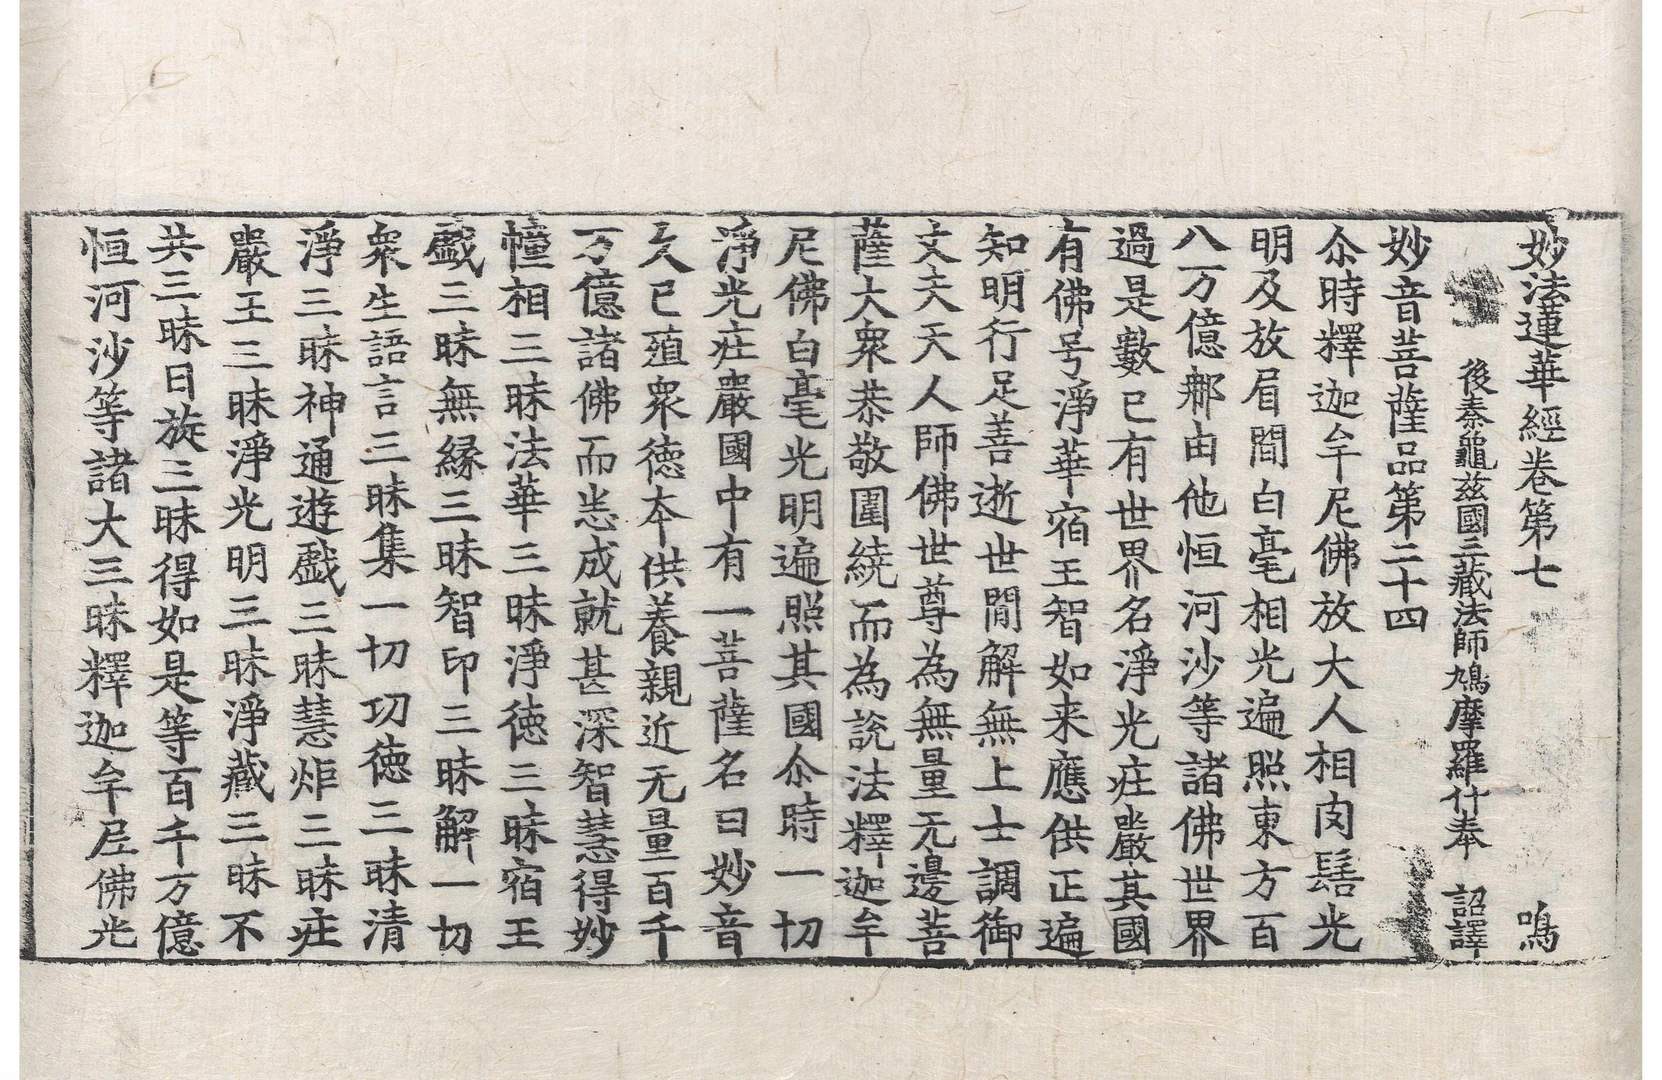 妙法蓮華經卷第七　鳴
後秦龜茲國三藏法師鳩摩羅什奉　詔譯
妙音菩薩品第二十四
尒時釋迦牟尼佛放大人相肉髻光
明及放眉間白毫相光遍照東方百
八万億那由他恒河沙等諸佛世界
過是數已有世界名淨光庄嚴其國
有佛号淨華宿王智如来應供正遍
知明行足善逝世間解無上士調御
丈夫天人師佛世尊為無量无邊菩
薩大衆恭敬圍繞而為説法釋迦牟
尼佛白毫光明遍照其國尒時一切
淨光庄嚴國中有一菩薩名曰妙音
久已殖衆德本供養親近无量百千
万億諸佛而悉成就甚深智慧得妙
幢相三昧法華三昧淨德三昧宿王
戲三昧無緣三昧智印三昧解一切
衆生語言三昧集一切功德三昧清
淨三昧神通遊戲三昧慧炬三昧庄
嚴王三昧淨光明三昧淨藏三昧不
共三昧日旋三昧得如是等百千万億
恒河沙等諸大三昧釋迦牟尼佛光